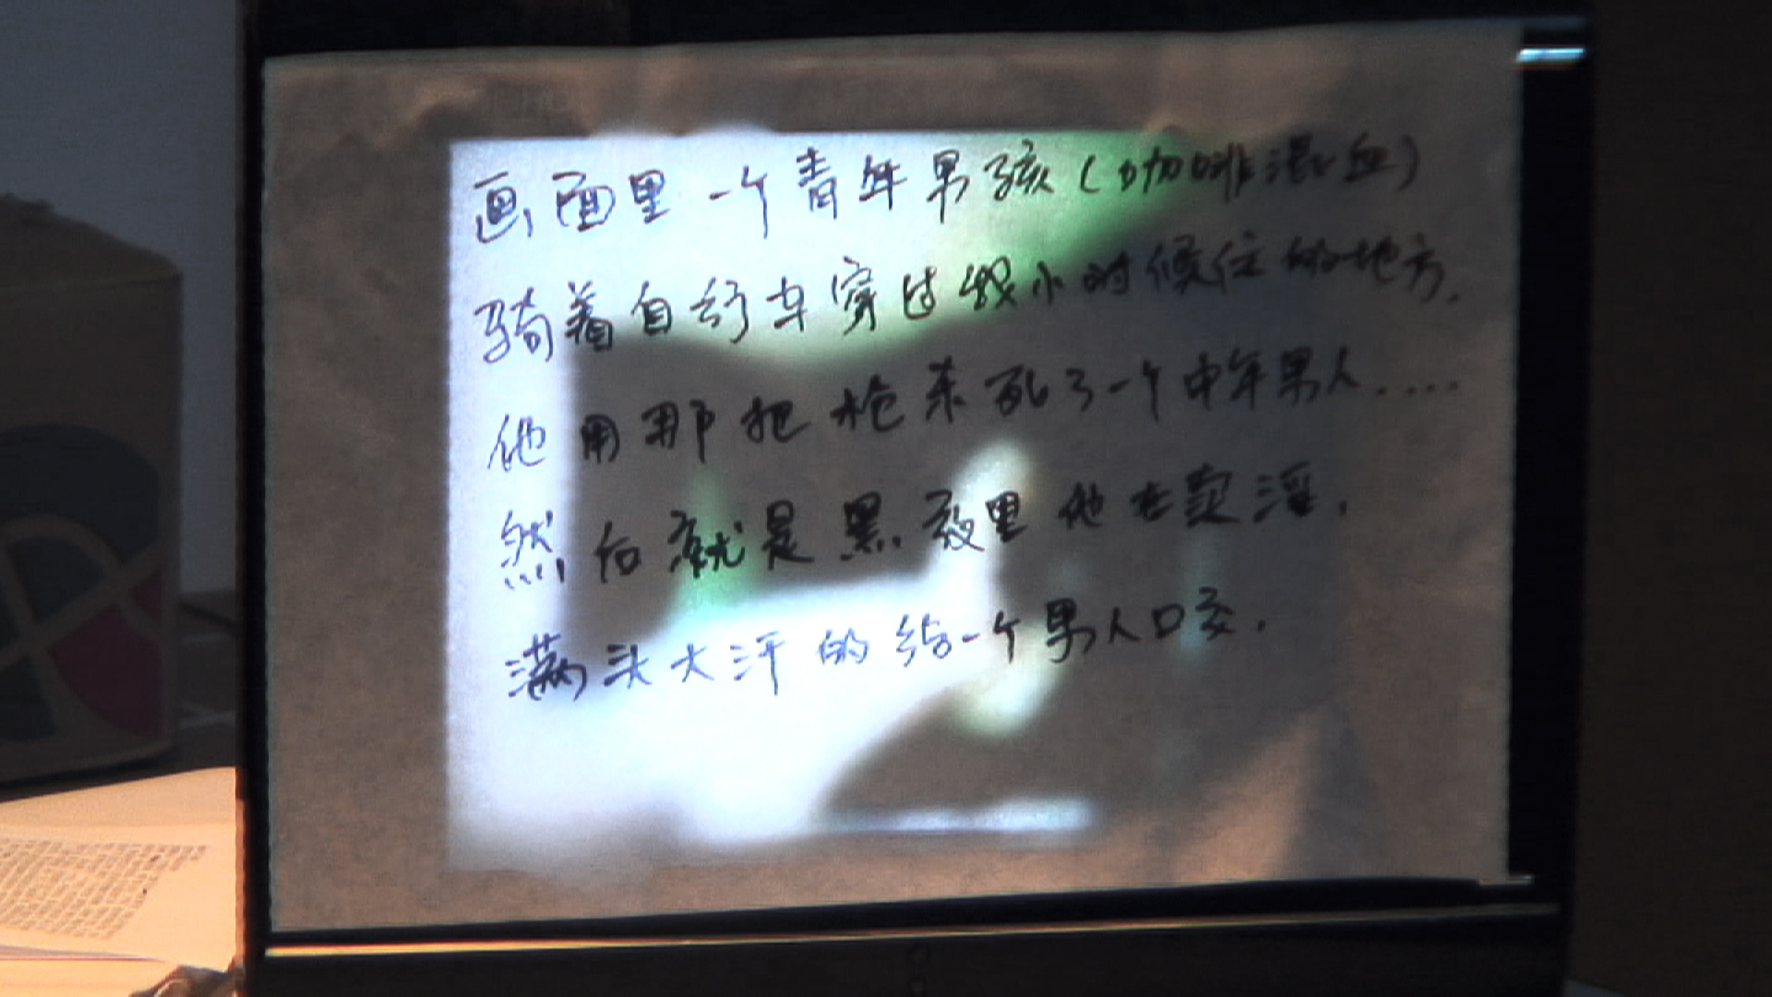 画面里一个青年男孩(咖啡混血)
骑着自行车穿过我小时候住的地方.
他用那把枪杀死了一个中年男人.....
然后就是黑夜里他去卖淫.
满头大汗的给一个男人口交.